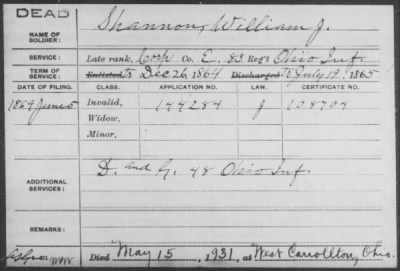 DEAD
NAME OF SOLDIER: Shannon, William J.
SERVICE: Late rank, Corp Co. E, 83 Reg't Ohio Inf.
TERM OF SERVICE: Enlisted to Dec 26, 1864 Discharged to July 19, 1865
DATE OF FILING. CLASS. APPLICATION NO. LAW. CERTIFICATE NO.
1869 June Invalid, 144284 J 108704
Widow,
Minor,
ADDITIONAL SERVICES: D. and G. 48 Ohio Inf.
REMARKS:
Died May 15, 1931, at West Carrollton, Ohio.